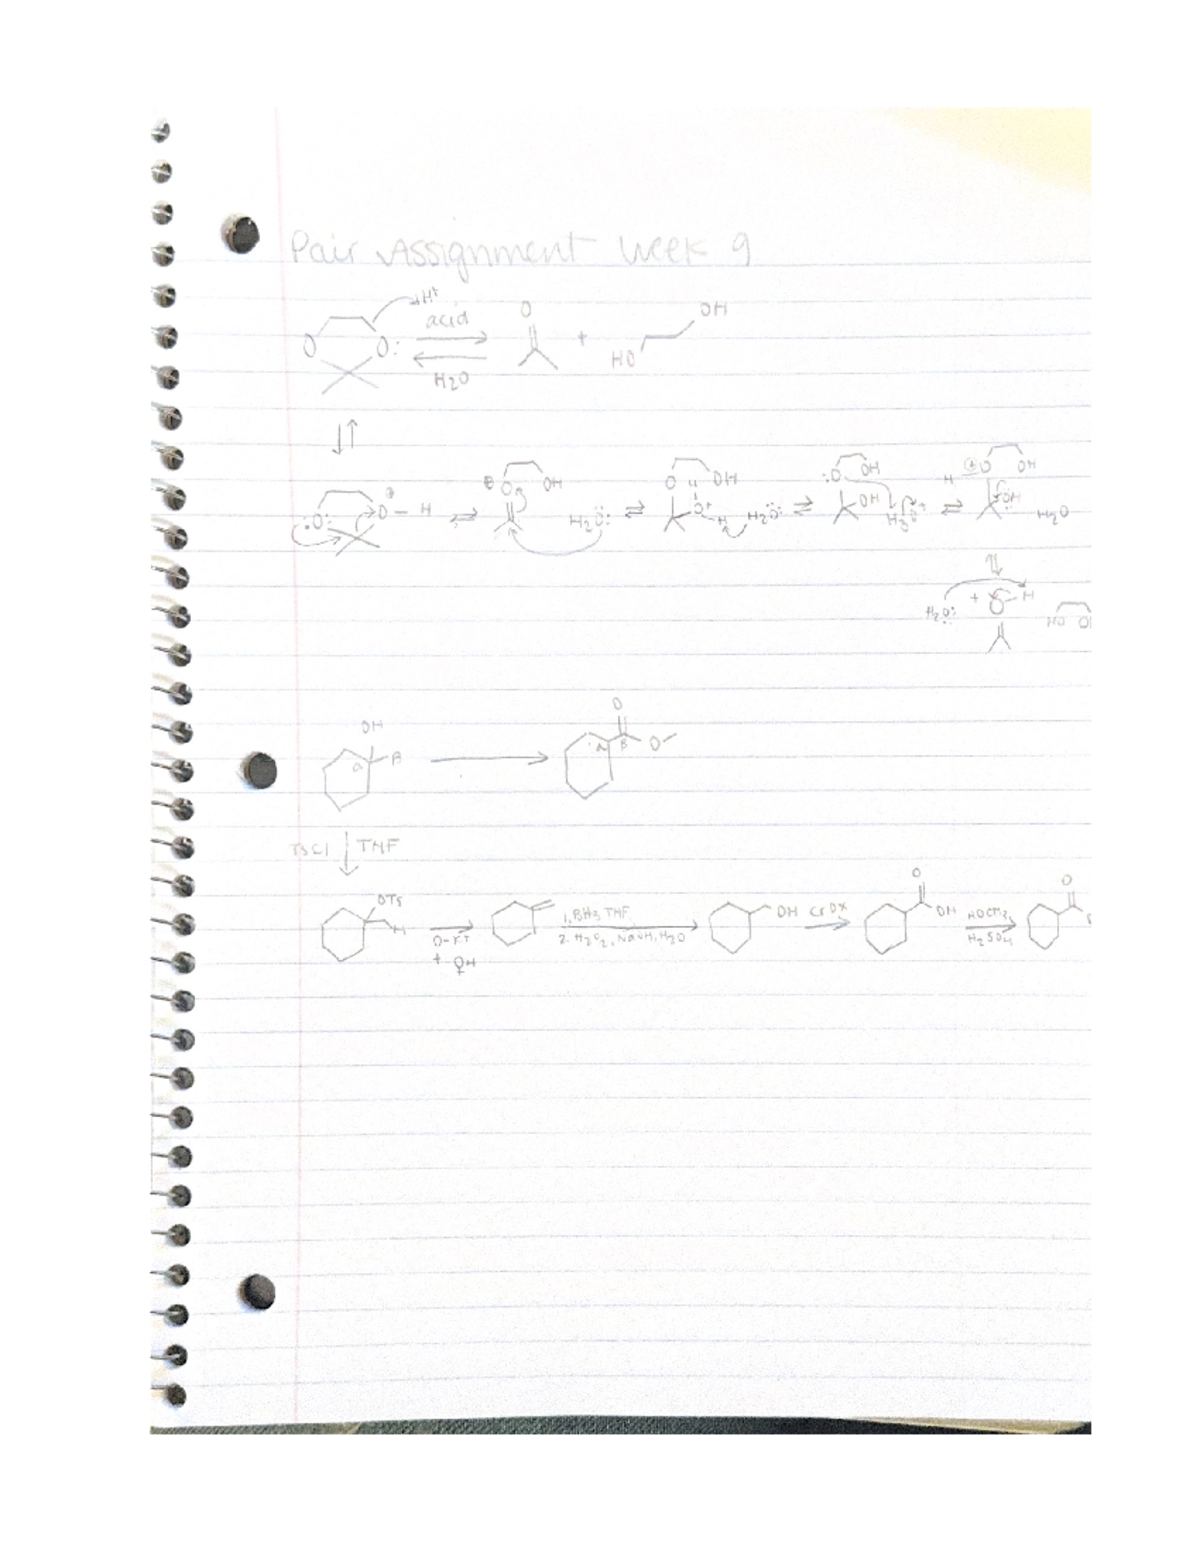 Pair Assignment Week 9
H+
O O: acid O + OH
H2O HO
:O: O — H
⊕ O OH H2O:
O OH O+ H H2O:
:O OH OH H3O+
H ⊕ O OH OH H2O
H2O: + O H
HO O
OH
a B
O
a B O
TsCl THF
OTs
H
+ OH
1. BH3 THF
2. H2O2, NaOH, H2O
OH
CrOx
O
OH
HOCH3
H2SO4
O